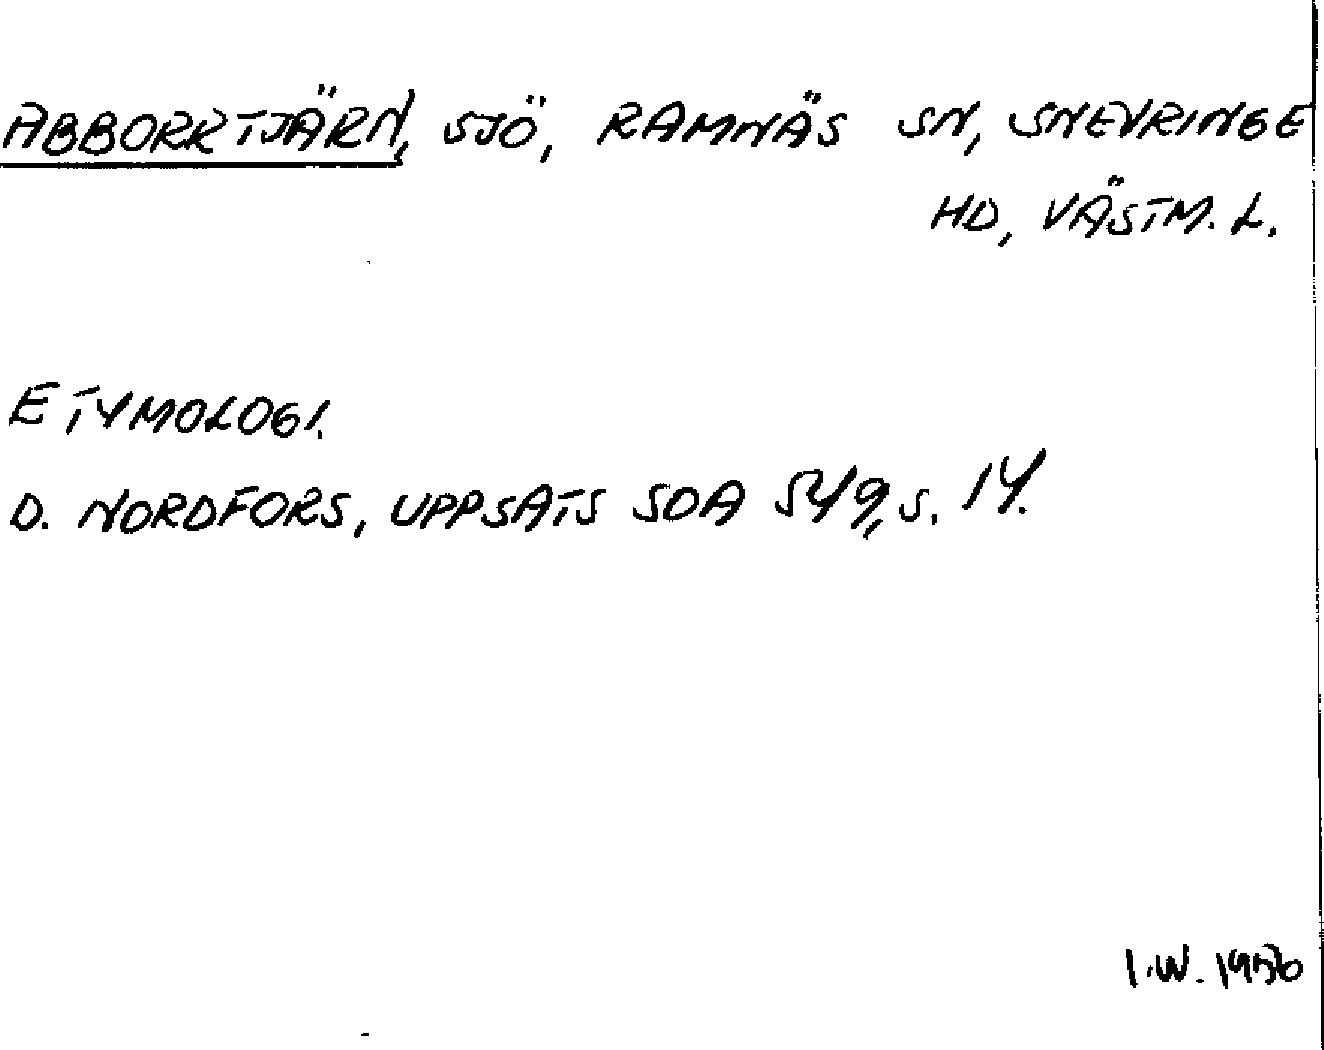 ABBORRTJÄRN, SJÖ, RAMNÄS SN, SNEVRINGE
HD, VÄSTM. L.
ETYMOLOGI.
D. NORDFORS, UPPSATS SOA 549, s. 14.
I.W. 1956